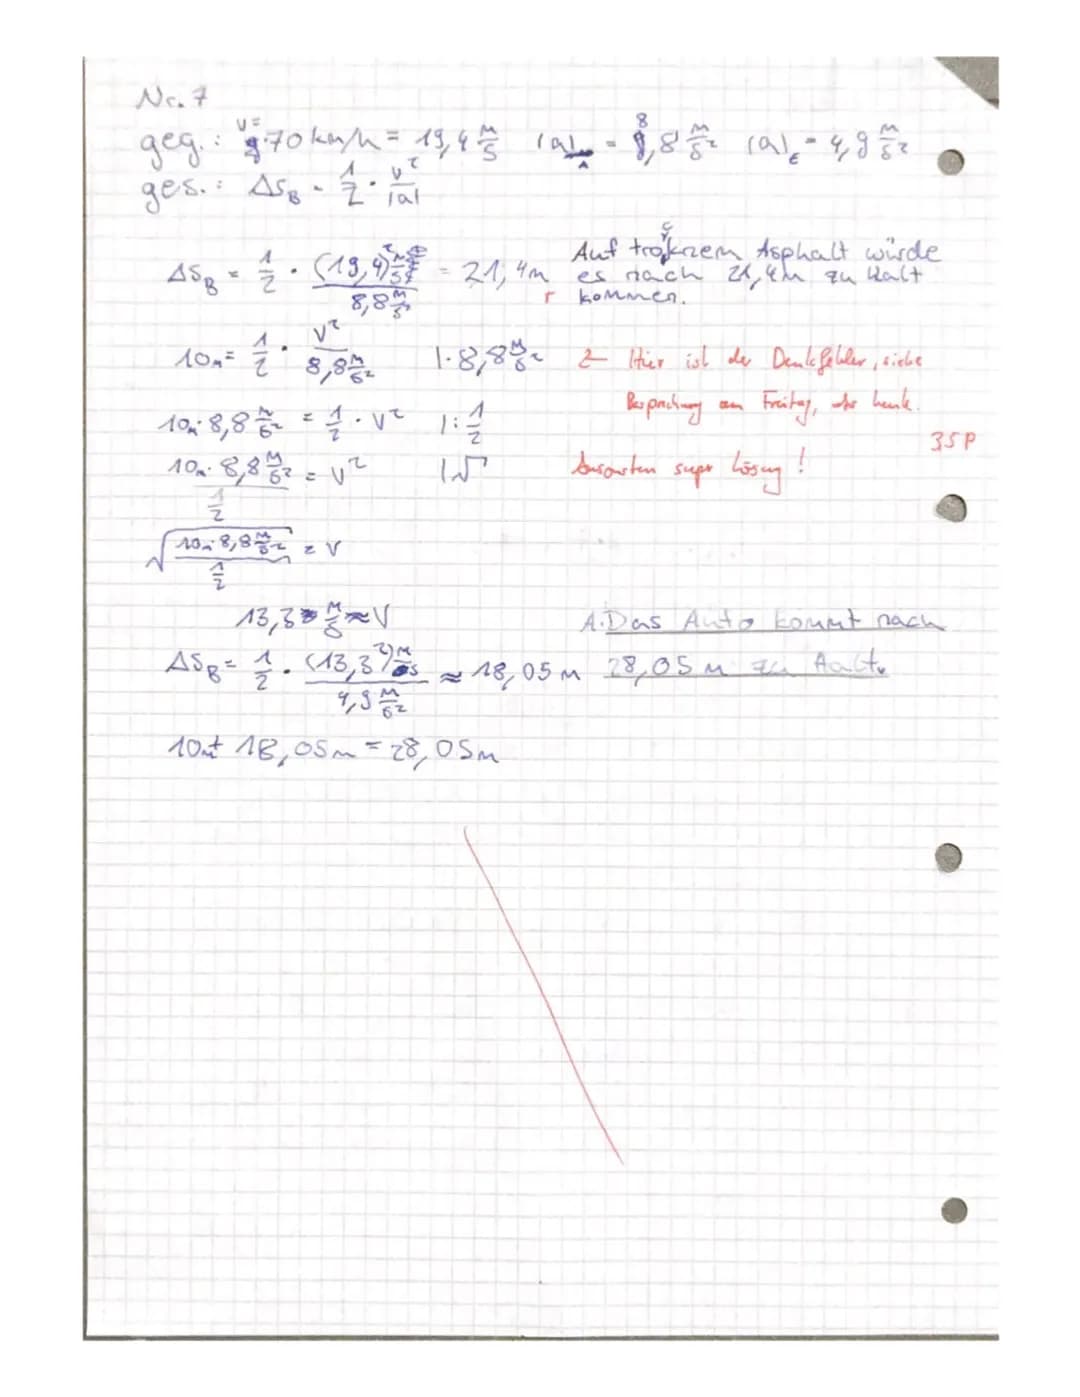 Nr. 7
geg.: v = 70 km/h = 19,4 m/s |a|_A = 8,8 m/s² |a|_E = 4,9 m/s²
ges.: ΔS_B = 1/2 · v²/|a|
ΔS_B = 1/2 · (19,4)² / 8,8 m/s² = 21,4m
Auf trockzem Asphalt würde
es nach 21,4m zu Halt
kommen.
r
10m = 1/2 · v² / 8,8 m/s² |· 8,8 m/s²
Hier ist der Denkfehler, siehe
Besprechung am Freitag, heute.
10m · 8,8 m/s² = 1/2 · v² |: 1/2
3,5P
10m · 8,8 m/s² / 1/2 = v² |√
Ansonsten super Lösung!
√(10m · 8,8 m/s² / 1/2) = v
13,3 m/s ≈ v
A: Das Auto kommt nach
28,05 m zu Halt.
ΔS_B = 1/2 · (13,3²) m/s / 4,9 m/s² ≈ 18,05 m
10m + 18,05m = 28,05m